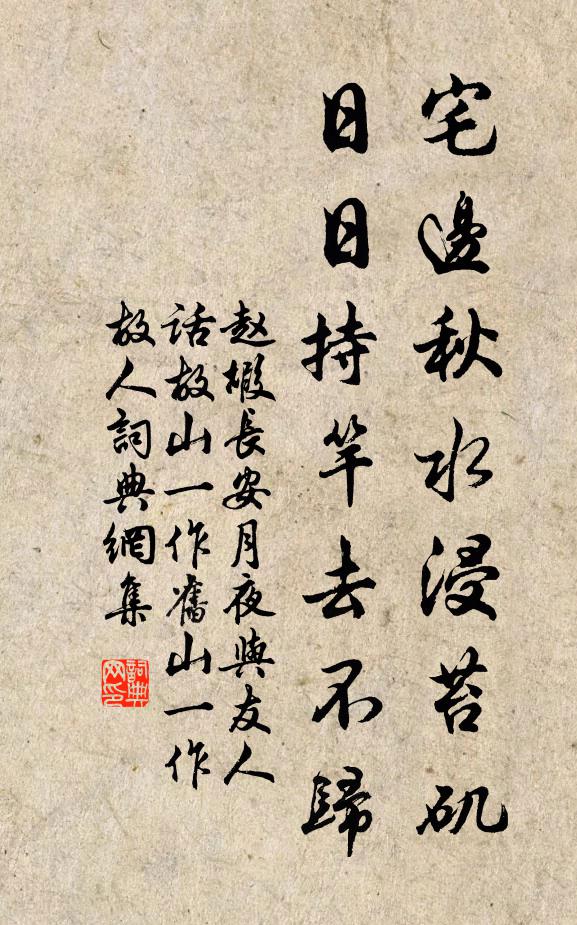 宅邊秋水浸苔矶
日日持竿去不歸
赵嘏長安月夜與友人
話故山一作舊山一作
故人詞典網集
詞典
网印